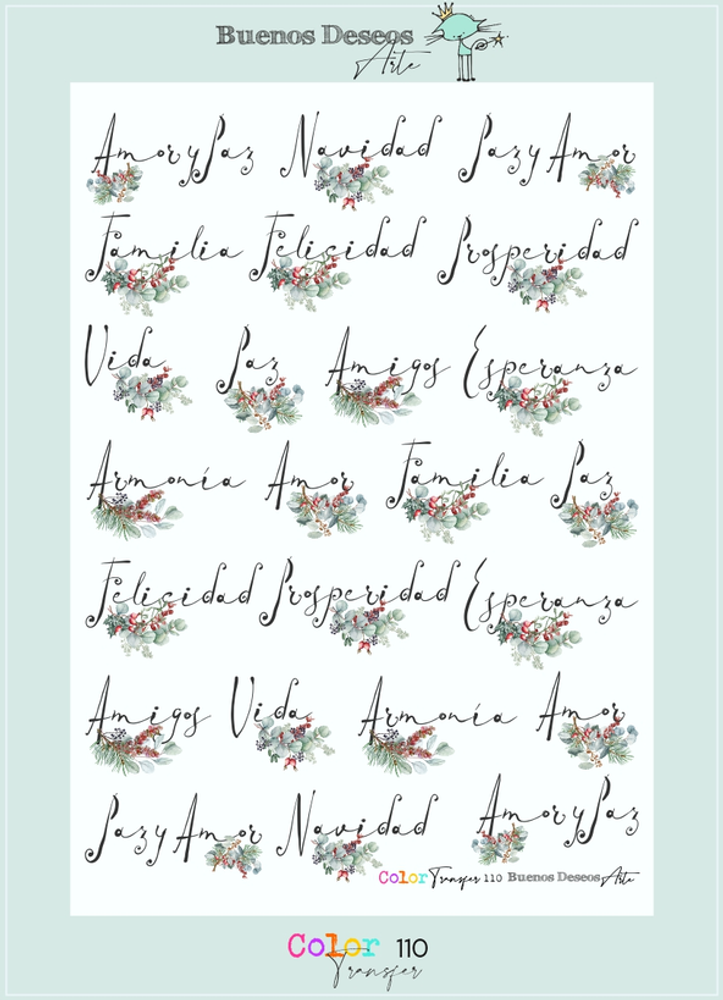 Buenos Deseos
Arte
Amor y Paz Navidad Paz y Amor
Familia Felicidad Prosperidad
Vida Paz Amigos Esperanza
Armonía Amor Familia Paz
Felicidad Prosperidad Esperanza
Amigos Vida Armonía Amor
Paz y Amor Navidad Amor y Paz
Color Transfer 110 Buenos Deseos Arte
Color 110
Transfer